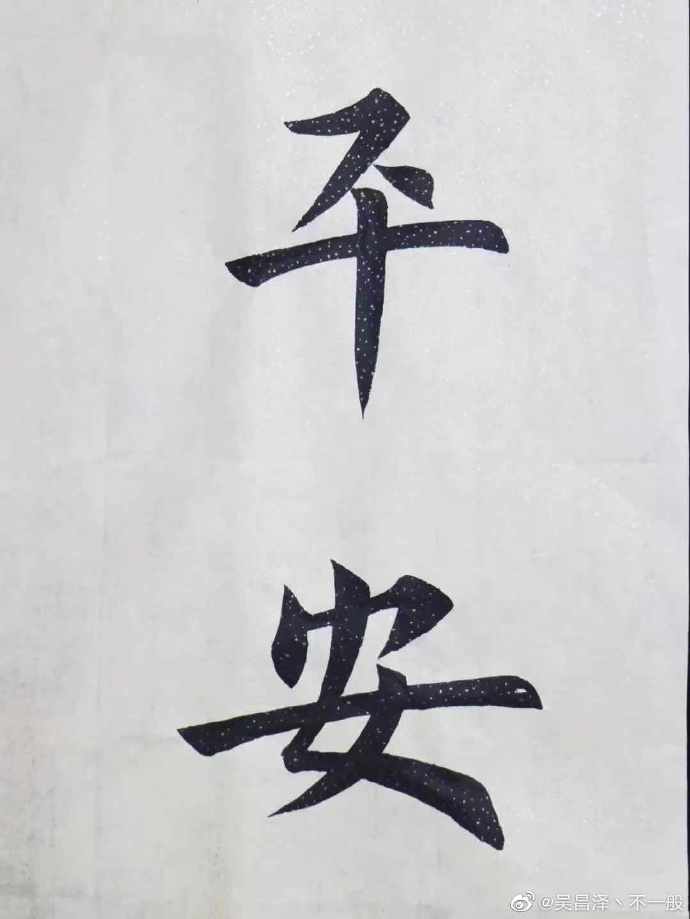 平安
@吴昌泽丶不一般